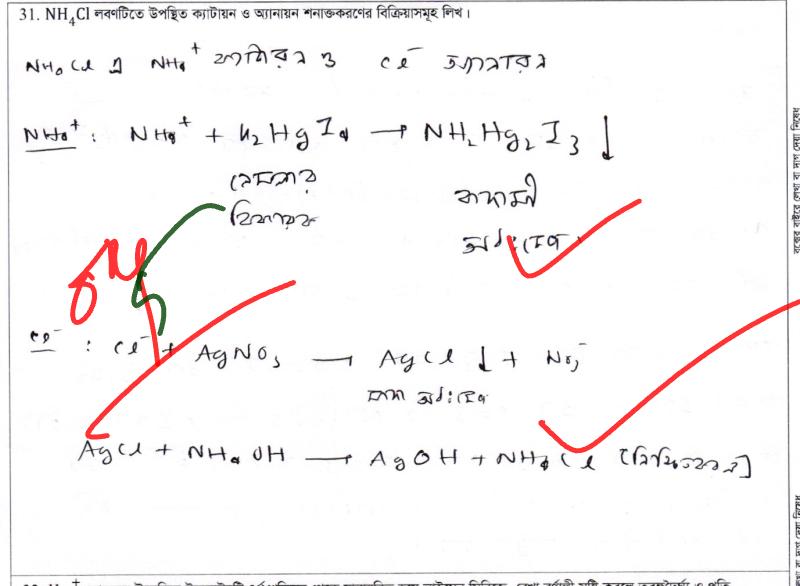 31. NH₄Cl লবণটিতে উপস্থিত ক্যাটায়ন ও অ্যানায়ন শনাক্তকরণের বিক্রিয়াসমূহ লিখ।
NH₄Cl এ NH₄⁺ ক্যাটায়ন ও Cl⁻ অ্যানায়ন
NH₄⁺ : NH₄⁺ + K₂HgI₄ → NH₂Hg₂I₃ ↓
নেসলার
বিকারক
বাদামী
অধঃক্ষেপ
Cl⁻ : Cl⁻ + AgNO₃ → AgCl ↓ + NO₃⁻
সাদা অধঃক্ষেপ
AgCl + NH₄OH → AgOH + NH₄Cl [নিশ্চিতকরণ]